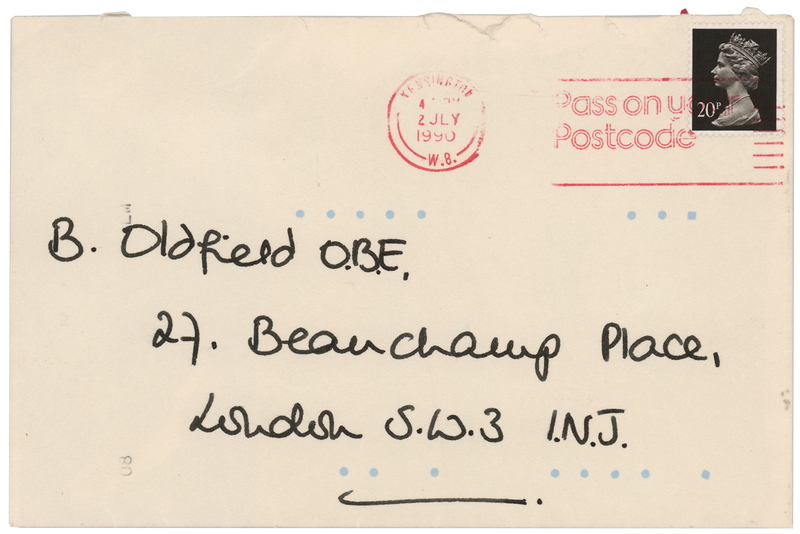 KENSINGTON
2 JLY
1990
W.8.
Pass on your
Postcode
20P
B. Oldfield O.B.E,
27. Beauchamp Place,
London S.W.3 I.N.J.